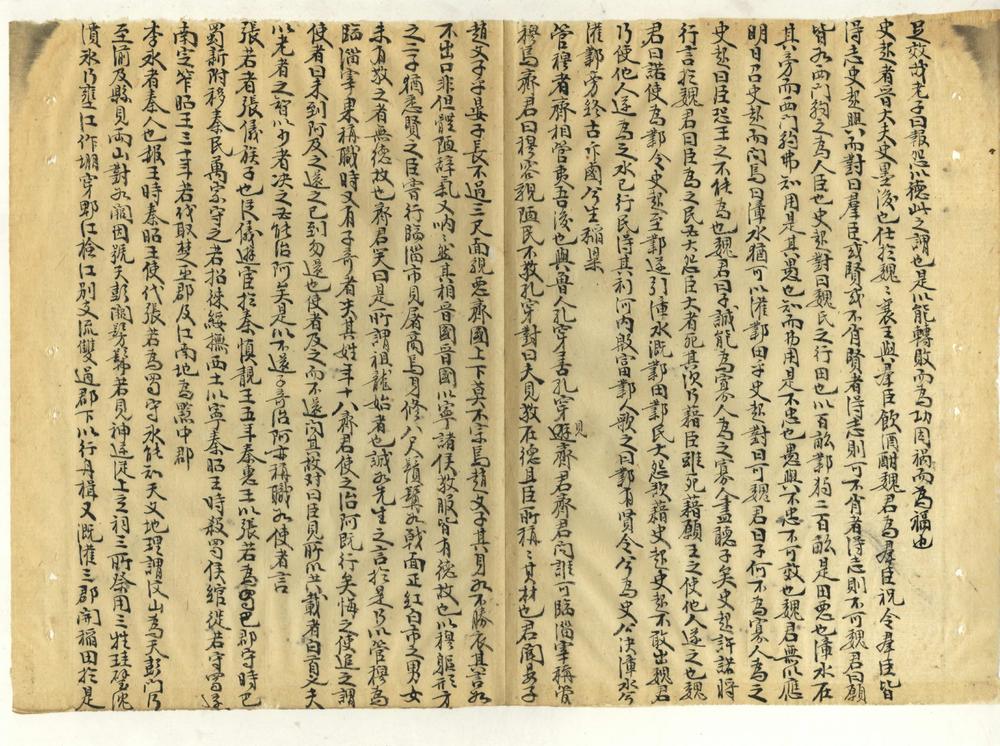 是效哉老子曰報怨以德此之謂也是以能轉敗而為功因禍而為福也
史起者晉大夫史墨後也仕於魏〻襄王與羣臣飲酒酣魏君為羣臣祝令羣臣皆
得志史起興而對曰羣臣或賢或不肖賢者得志則可不肖者得志則不可魏君曰願
皆如西門豹之為人臣也史起對曰魏民之行田也以百畝鄴獨二百畝是田惡也漳水在
其旁而西門豹弗知用是其愚也知而弗用是不忠也愚與不忠不可效也魏君無以應
明日召史起而問焉曰漳水猶可以灌鄴田乎史起對曰可魏君曰子何不為寡人為之
史起曰臣恐王之不能為也魏君曰子誠能為寡人為之寡人盡聽子矣史起許諾將
行言於魏君曰臣為之民必大怨臣大者死其次乃藉臣雖死藉願王之使他人遂之也魏
君曰諾使為鄴令史起至鄴遂引漳水溉鄴田鄴民大怨欲藉史起史起不敢出魏君
乃使他人遂為之水已行民得其利河內殷富鄴人歌之曰鄴有賢令兮為史公決漳水兮
灌鄴旁終古斥鹵兮生稻粱
管穆者齊相管夷吾後也與魯人孔穿善孔穿遊齊見齊君齊君問誰可臨淄宰稱管
穆焉齊君曰穆容貌陋民不敬孔穿對曰夫見敬在德且臣所稱〻其材也君聞晏子
趙文子乎晏子長不過三尺面貌惡齊國上下莫不宗焉趙文子其身如不勝衣其言如
不出口非但體陋辭氣又吶〻然其相晉國晉國以寧諸侯敬服皆有德故也以穆軀形方
之二子猶悉賢之臣嘗行臨淄市見屠商焉身修八尺鬚髯如戟面正紅白市之男女
未有敬之者無德故也齊君笑曰是所謂祖龍始者也誠如先生之言於是乃以管穆為
臨淄宰果稱職時又有子奇者失其姓年十八齊君使之治阿既行矣悔之使追之謂
使者曰未到阿及之還之已到勿還也使者及之而不還問其故對曰臣見所與共載者白首也夫
以老者之智以少者決之必能治阿矣是以不還子奇治阿亦稱職如使者言
張若者張儀族子也從儀遊宦於秦慎靚王五年秦惠王以張若為蜀巴郡守時巴
蜀新附移秦民萬家守之若招徠綏撫西土以寧秦昭王時殺蜀侯綰從若守蜀遂
南定笮昭王三十年若伐取楚巫郡及江南地為黔中郡
李冰者秦人也赧王時秦昭王使代張若為蜀守冰能知天文地理謂汶山為天彭門乃
至湔及縣見兩山對如闕因號天彭闕髣髴若見神遂從上立祠三所祭用三牲珪璧沈
濆冰乃壅江作堋穿郫江檢江別支流雙過郡下以行舟楫又溉灌三郡開稻田於是